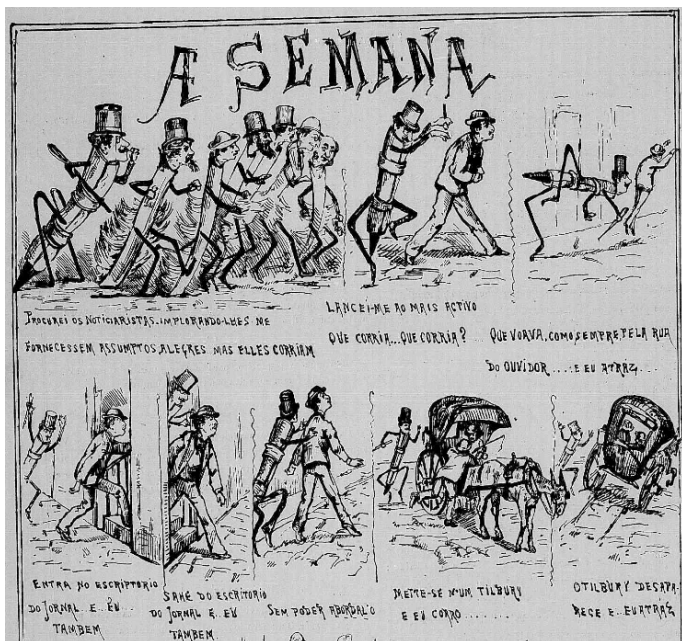 A SEMANA
PROCUREI OS NOTICIARISTAS. IMPLORANDO-LHES ME
FORNECESSEM ASSUMPTOS ALEGRES MAS ELLES CORRIAM
LANCEI-ME AO MAIS ACTIVO
QUE CORRIA... QUE CORRIA?
QUE VOAVA, COMO SEMPRE, PELA RUA
DO OUVIDOR ..... E EU ATRAZ...
ENTRA NO ESCRIPTORIO
DO JORNAL E.. EU
TAMBEM
SAHE DO ESCRITORIO
DO JORNAL E.. EU
TAMBEM
SEM PODER ABORDAL'O
METTE-SE N'UM TILBURY
E EU CORRO.........
O TILBURY DESAPA-
RECE E.. EU ATRAZ